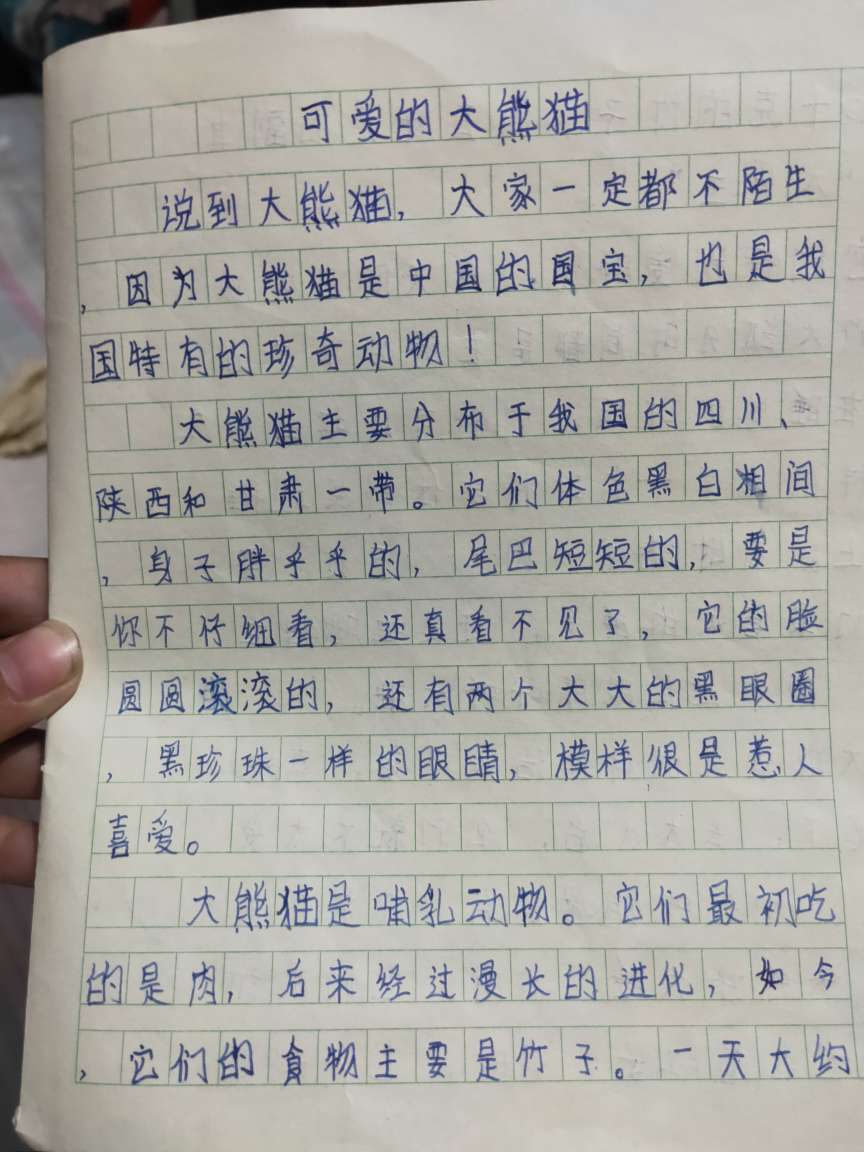 可爱的大熊猫
说到大熊猫，大家一定都不陌生
，因为大熊猫是中国的国宝，也是我
国特有的珍奇动物！
大熊猫主要分布于我国的四川、
陕西和甘肃一带。它们体色黑白相间
，身子胖乎乎的，尾巴短短的，要是
你不仔细看，还真看不见了，它的脸
圆圆滚滚的，还有两个大大的黑眼圈
，黑珍珠一样的眼睛，模样很是惹人
喜爱。
大熊猫是哺乳动物。它们最初吃
的是肉，后来经过漫长的进化，如今
，它们的食物主要是竹子。一天大约